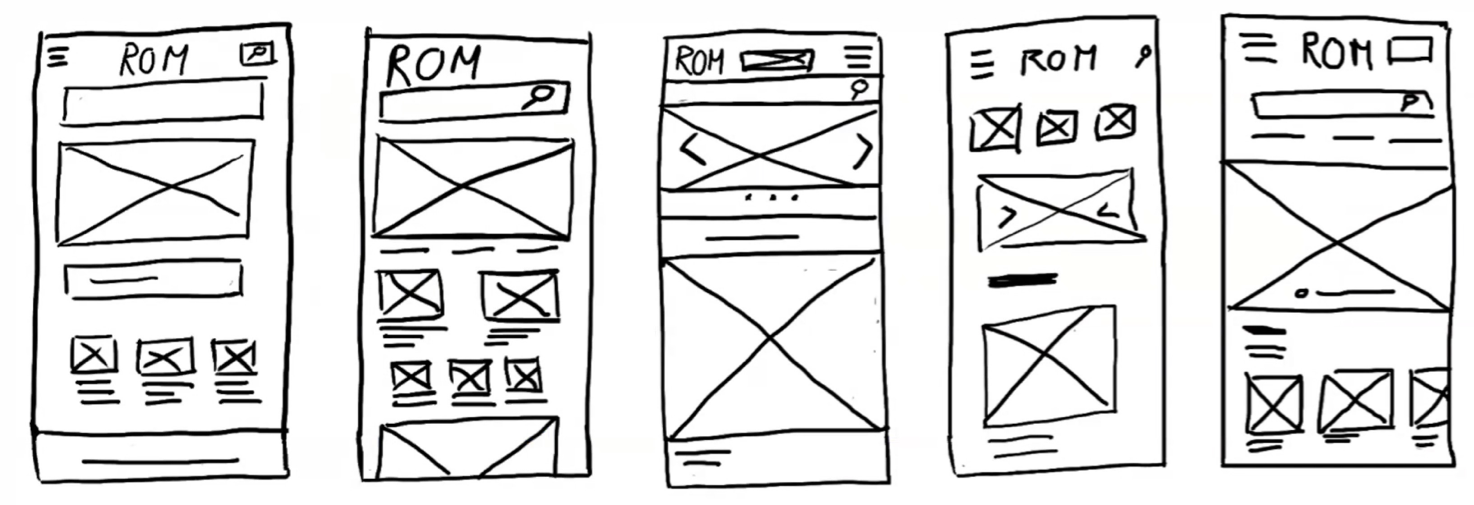 ROM
ROM
ROM
ROM
ROM